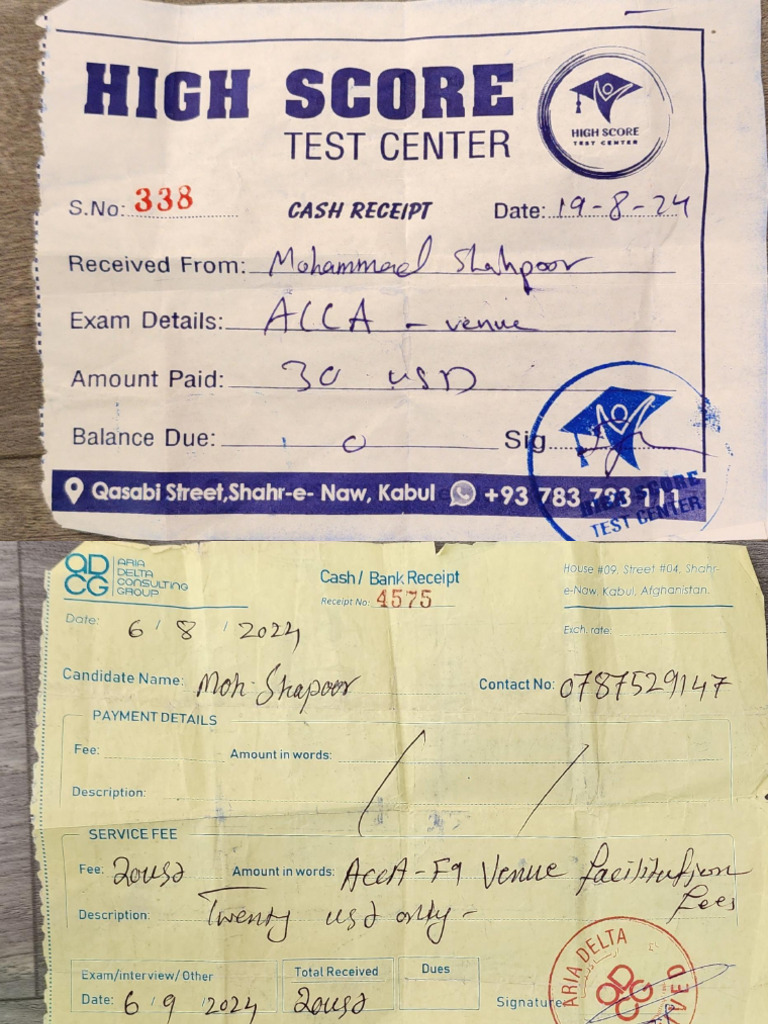 HIGH SCORE
TEST CENTER
HIGH SCORE
TEST CENTER
S.No: 338 CASH RECEIPT Date: 19-8-24
Received From: Mohammad Shahpoor
Exam Details: ACCA - venue
Amount Paid: 30 USD
Balance Due: 0 Sig
Qasabi Street,Shahr-e- Naw, Kabul +93 783 793 111
HIGH SCORE
TEST CENTER
ADCG ARIA DELTA CONSULTING GROUP
Cash/ Bank Receipt
Receipt No: 4575
House #09, Street #04, Shahr-
e-Naw, Kabul, Afghanistan.
Date: 6 / 8 / 2024 Exch. rate:
Candidate Name: Moh Shapoor Contact No: 0787529147
PAYMENT DETAILS
Fee: Amount in words:
Description:
SERVICE FEE
Fee: 20usd Amount in words: AccA-F9 Venue facilitation fees
Description: Twenty usd only -
Exam/interview/ Other Total Received Dues
Date: 6 / 9 / 2024 20usd Signature:
ARIA DELTA
ADCG